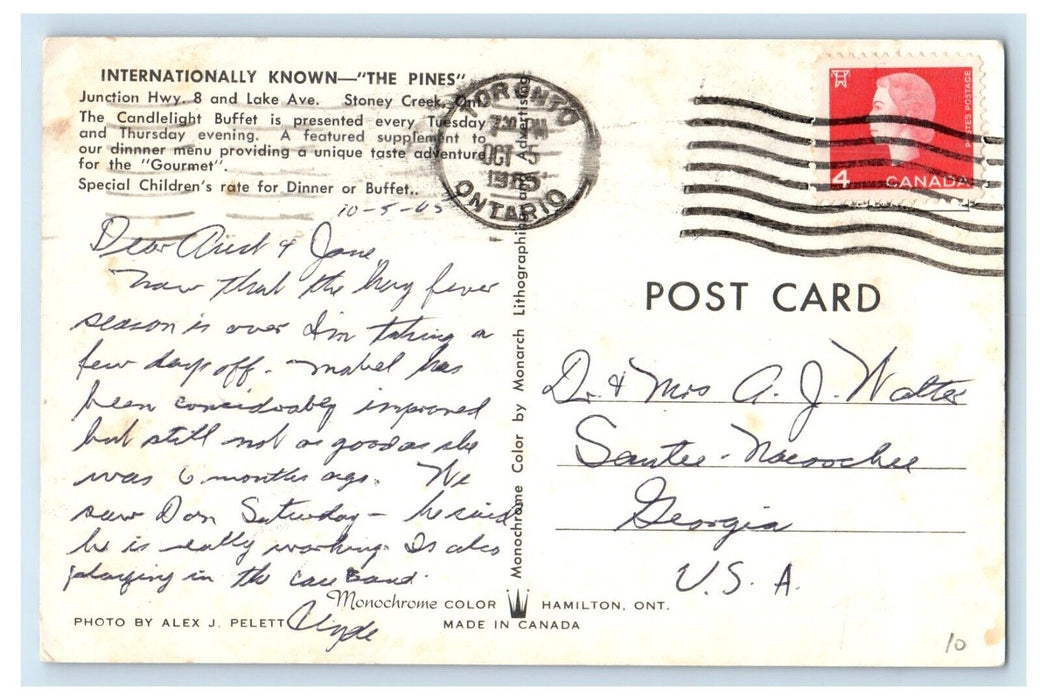 INTERNATIONALLY KNOWN—"THE PINES"
Junction Hwy. 8 and Lake Ave. Stoney Creek, Ont.
The Candlelight Buffet is presented every Tuesday
and Thursday evening. A featured supplement to
our dinnner menu providing a unique taste adventure
for the "Gourmet".
Special Children's rate for Dinner or Buffet..
10-5-65
Dear & Jane
Now that the Hay fever
season is over I'm taking a
few days off. Mabel has
been considerably improved
but still not as good as she
was 6 months ago. We
saw Don Saturday - he said
he is really working. Is also
playing in the Band.
Clyde
PHOTO BY ALEX J. PELETT
Monochrome COLOR HAMILTON, ONT.
MADE IN CANADA
Monochrome Color by Monarch Lithographing and Advertising
TORONTO
7:30 PM
OCT 5
1965
ONTARIO
POSTES POSTAGE
4 CANADA
POST CARD
Dr. & Mrs A. J. Walter
Sautee-Nacoochee
Georgia
U.S.A.
10